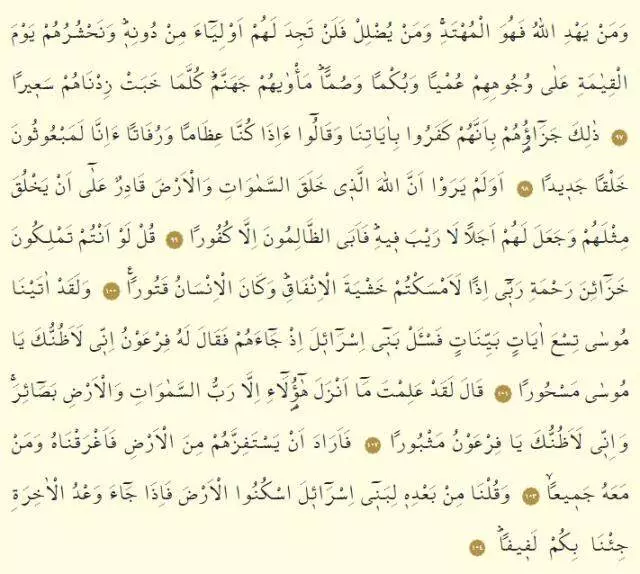 وَمَنْ يَهْدِ اللّٰهُ فَهُوَ الْمُهْتَدِۚ وَمَنْ يُضْلِلْ فَلَنْ تَجِدَ لَهُمْ اَوْلِيَٓاءَ مِنْ دُونِه۪ۜ وَنَحْشُرُهُمْ يَوْمَ
الْقِيٰمَةِ عَلٰى وُجُوهِهِمْ عُمْيًا وَبُكْمًا وَصُمًّاۜ مَأْوٰيهُمْ جَهَنَّمُۜ كُلَّمَا خَبَتْ زِدْنَاهُمْ سَع۪يرًا
﴿٩٧﴾ ذٰلِكَ جَزَٓاؤُ۬هُمْ بِاَنَّهُمْ كَفَرُوا بِاٰيَاتِنَا وَقَالُٓوا ءَاِذَا كُنَّا عِظَامًا وَرُفَاتًا ءَاِنَّا لَمَبْعُوثُونَ
خَلْقًا جَد۪يدًا ﴿٩٨﴾ اَوَلَمْ يَرَوْا اَنَّ اللّٰهَ الَّذ۪ي خَلَقَ السَّمٰوَاتِ وَالْاَرْضَ قَادِرٌ عَلٰٓى اَنْ يَخْلُقَ
مِثْلَهُمْ وَجَعَلَ لَهُمْ اَجَلًا لَا رَيْبَ ف۪يهِۜ فَاَبَى الظَّالِمُونَ اِلَّا كُفُورًا ﴿٩٩﴾ قُلْ لَوْ اَنْتُمْ تَمْلِكُونَ
خَزَٓائِنَ رَحْمَةِ رَبّ۪ٓي اِذًا لَاَمْسَكْتُمْ خَشْيَةَ الْاِنْفَاقِۜ وَكَانَ الْاِنْسَانُ قَتُورًا۟ ﴿١٠٠﴾ وَلَقَدْ اٰتَيْنَا
مُوسٰى تِسْعَ اٰيَاتٍ بَيِّنَاتٍ فَسْـَٔلْ بَن۪ٓي اِسْرَٓائ۪لَ اِذْ جَٓاءَهُمْ فَقَالَ لَهُ فِرْعَوْنُ اِنّ۪ي لَاَظُنُّكَ يَا
مُوسٰى مَسْحُورًا ﴿١٠١﴾ قَالَ لَقَدْ عَلِمْتَ مَٓا اَنْزَلَ هٰٓؤُ۬لَٓاءِ اِلَّا رَبُّ السَّمٰوَاتِ وَالْاَرْضِ بَصَٓائِرَۚ
وَاِنّ۪ي لَاَظُنُّكَ يَا فِرْعَوْنُ مَثْبُورًا ﴿١٠٢﴾ فَاَرَادَ اَنْ يَسْتَفِزَّهُمْ مِنَ الْاَرْضِ فَاَغْرَقْنَاهُ وَمَنْ
مَعَهُ جَم۪يعًاۙ ﴿١٠٣﴾ وَقُلْنَا مِنْ بَعْدِه۪ لِبَن۪ٓي اِسْرَٓائ۪لَ اسْكُنُوا الْاَرْضَ فَاِذَا جَٓاءَ وَعْدُ الْاٰخِرَةِ
جِئْنَا بِكُمْ لَف۪يفًاۜ ﴿١٠٤﴾